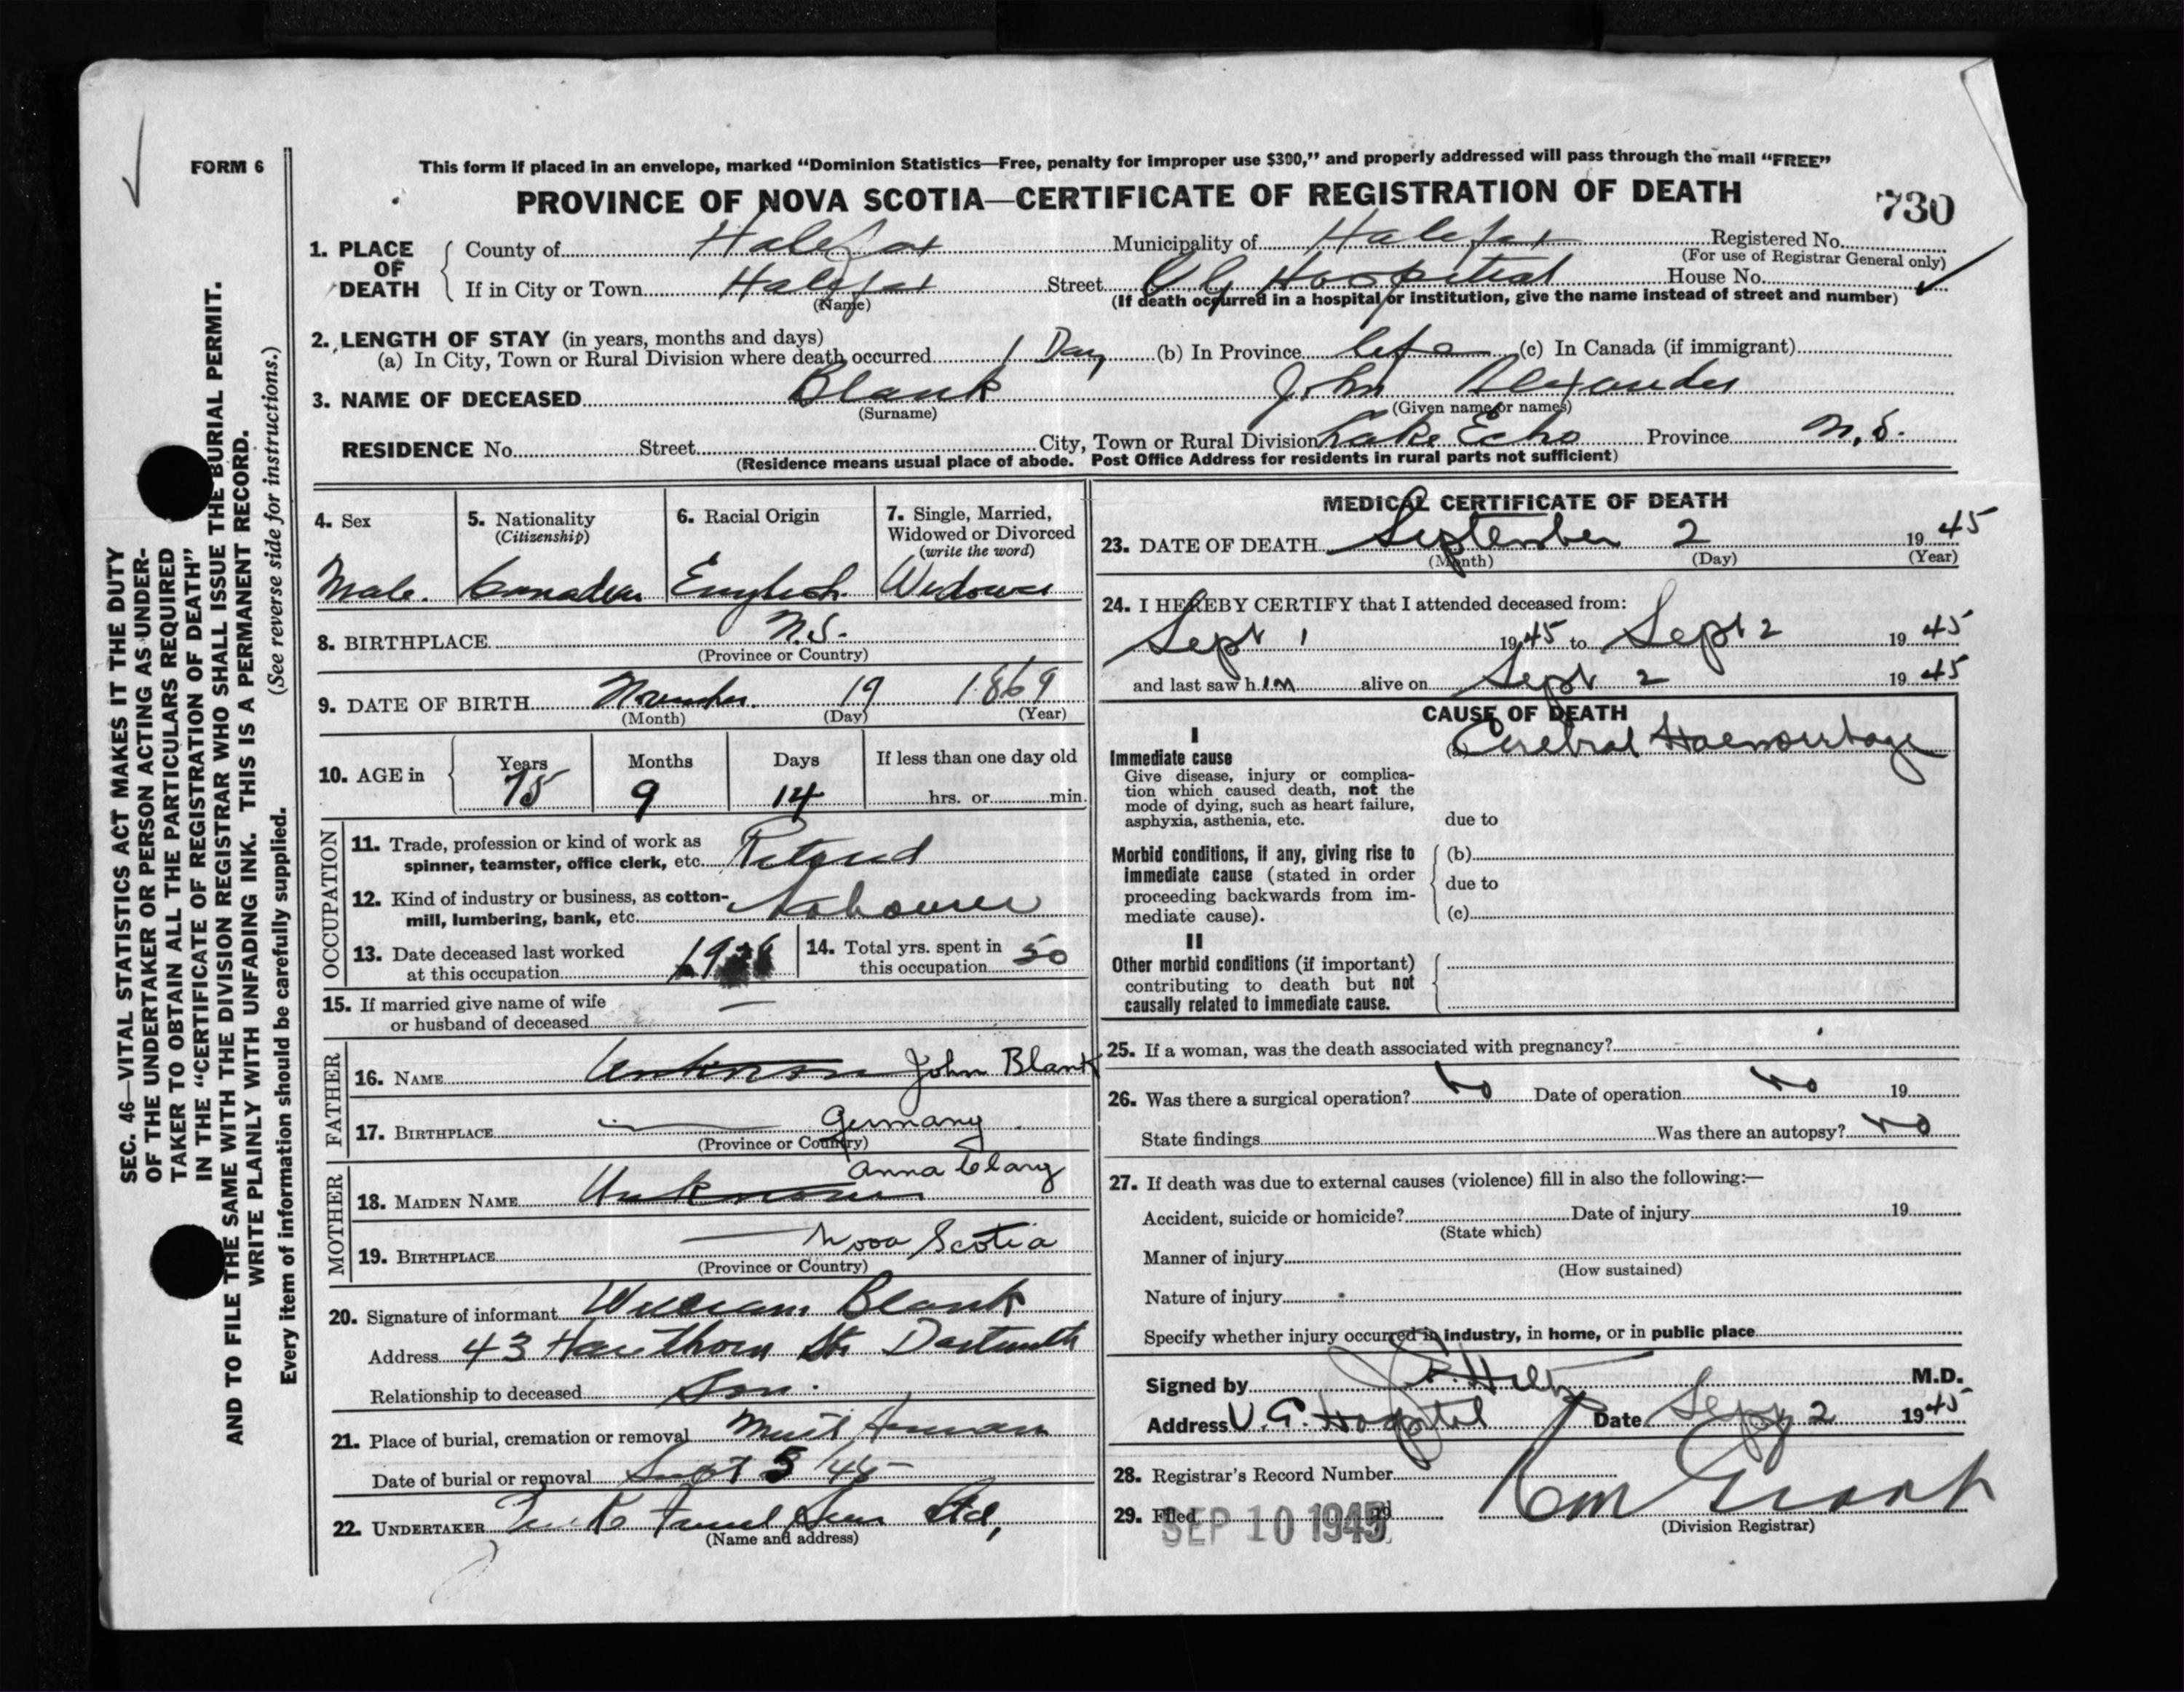 FORM 6
This form if placed in an envelope, marked “Dominion Statistics—Free, penalty for improper use $300,” and properly addressed will pass through the mail “FREE”
PROVINCE OF NOVA SCOTIA—CERTIFICATE OF REGISTRATION OF DEATH
730
1. PLACE OF DEATH
County of Halifax Municipality of Halifax Registered No.
(For use of Registrar General only)
If in City or Town Halifax Street V G Hospital House No.
(Name) (If death occurred in a hospital or institution, give the name instead of street and number)
2. LENGTH OF STAY (in years, months and days)
(a) In City, Town or Rural Division where death occurred 1 Day (b) In Province life (c) In Canada (if immigrant)
3. NAME OF DECEASED Blank John Alexander
(Surname) (Given name or names)
RESIDENCE No. Street City, Town or Rural Division Lake Echo Province N.S.
(Residence means usual place of abode. Post Office Address for residents in rural parts not sufficient)
4. Sex
Male.
5. Nationality
(Citizenship)
Canadian
6. Racial Origin
English
7. Single, Married,
Widowed or Divorced
(write the word)
Widower
8. BIRTHPLACE N.S.
(Province or Country)
9. DATE OF BIRTH November 19 1869
(Month) (Day) (Year)
10. AGE in
Years Months Days If less than one day old
75 9 14 hrs. or min.
OCCUPATION
11. Trade, profession or kind of work as
spinner, teamster, office clerk, etc. Retired
12. Kind of industry or business, as cotton-
mill, lumbering, bank, etc. Labourer
13. Date deceased last worked
at this occupation
14. Total yrs. spent in
this occupation 50
15. If married give name of wife
or husband of deceased —
FATHER
16. NAME Unknown John Blank
17. BIRTHPLACE Germany
(Province or Country)
MOTHER
Anna Clary
18. MAIDEN NAME Unknown
19. BIRTHPLACE Nova Scotia
(Province or Country)
20. Signature of informant William Blank
Address 43 Hawthorn St. Dartmouth
Relationship to deceased Son.
21. Place of burial, cremation or removal Mount Herman
Date of burial or removal Sept 3 /45
22. UNDERTAKER Sons Ltd,
(Name and address)
MEDICAL CERTIFICATE OF DEATH
23. DATE OF DEATH September 2 1945
(Month) (Day) (Year)
24. I HEREBY CERTIFY that I attended deceased from:
Sept 1 1945 to Sept 2 1945
and last saw him alive on Sept 2 1945
CAUSE OF DEATH
I
Immediate cause
(a) Cerebral Haemorrhage
Give disease, injury or complica-
tion which caused death, not the
mode of dying, such as heart failure,
asphyxia, asthenia, etc.
due to
Morbid conditions, if any, giving rise to
immediate cause (stated in order
proceeding backwards from im-
mediate cause).
(b)
due to
(c)
II
Other morbid conditions (if important)
contributing to death but not
causally related to immediate cause.
25. If a woman, was the death associated with pregnancy?
26. Was there a surgical operation? No Date of operation No 19
State findings Was there an autopsy? No
27. If death was due to external causes (violence) fill in also the following:—
Accident, suicide or homicide? Date of injury 19
(State which)
Manner of injury
(How sustained)
Nature of injury
Specify whether injury occurred in industry, in home, or in public place
Signed by M.D.
Address V.G. Hospital Date Sept 2 1945
28. Registrar's Record Number
29. Filed 19
SEP 10 1945
(Division Registrar)
SEC. 46—VITAL STATISTICS ACT MAKES IT THE DUTY
OF THE UNDERTAKER OR PERSON ACTING AS UNDER-
TAKER TO OBTAIN ALL THE PARTICULARS REQUIRED
IN THE “CERTIFICATE OF REGISTRATION OF DEATH”
AND TO FILE THE SAME WITH THE DIVISION REGISTRAR WHO SHALL ISSUE THE BURIAL PERMIT.
WRITE PLAINLY WITH UNFADING INK. THIS IS A PERMANENT RECORD.
Every item of information should be carefully supplied. (See reverse side for instructions.)